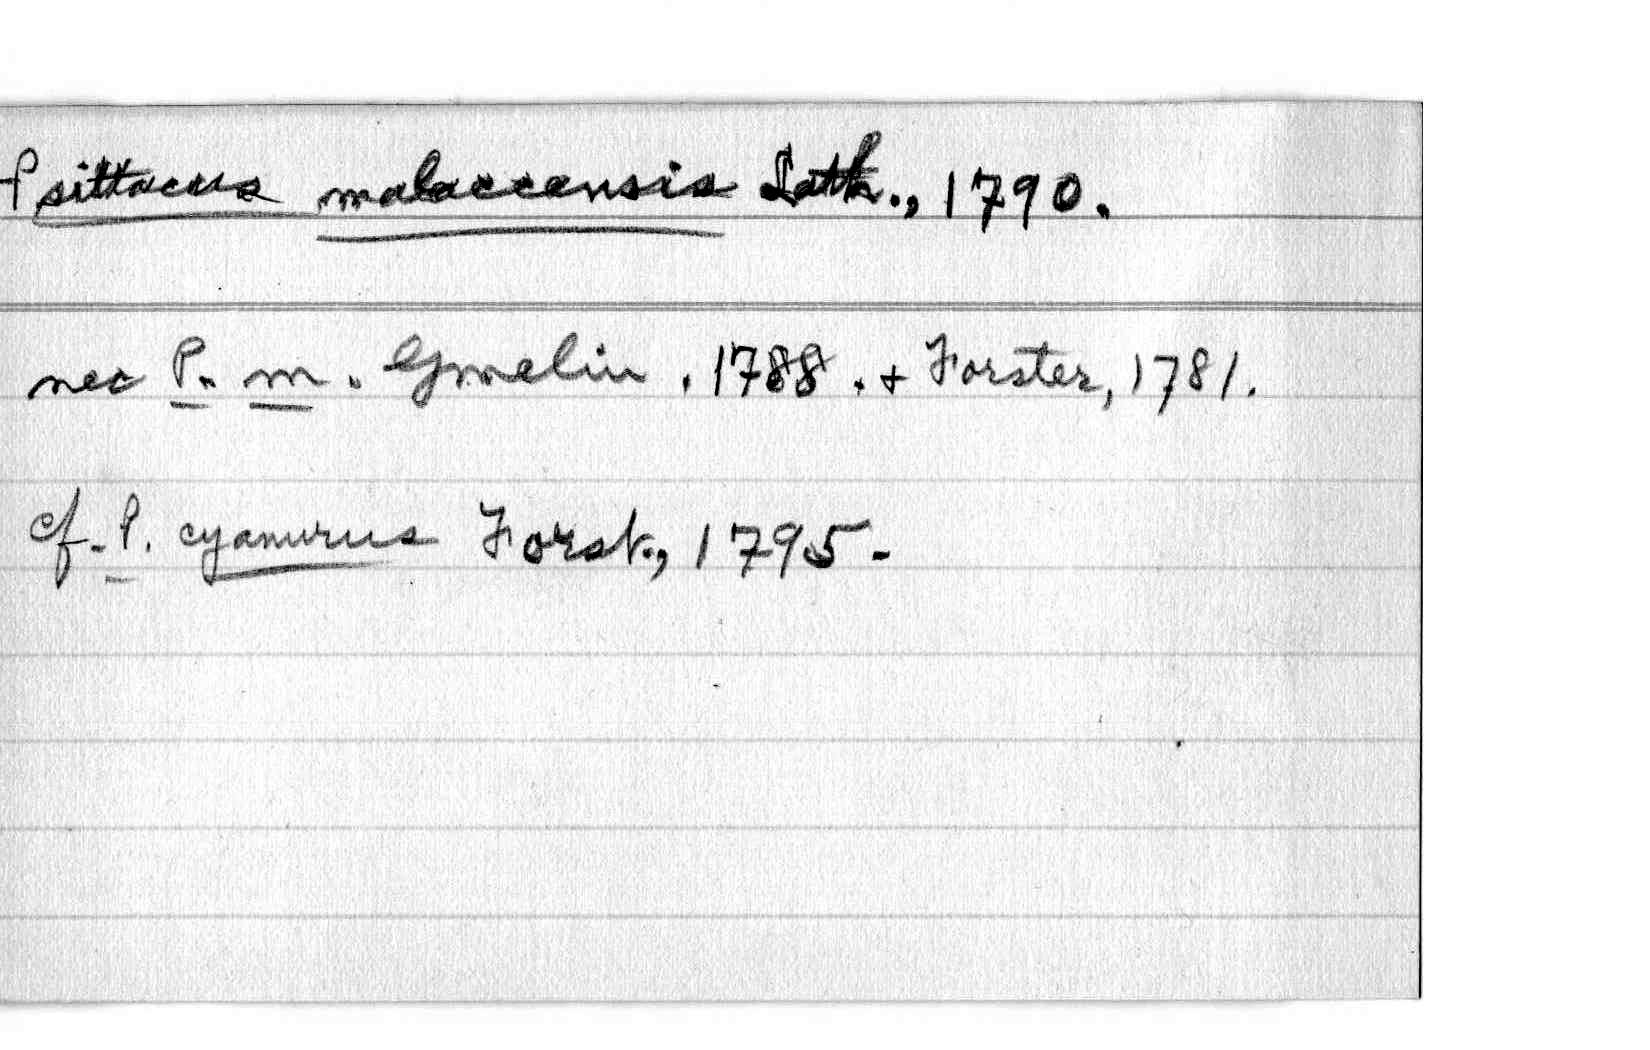 Psittacus malaccensis Lath., 1790.
nec P. m. Gmelin. 1788. + Forster, 1781.
cf. P. cyanurus Forst., 1795.